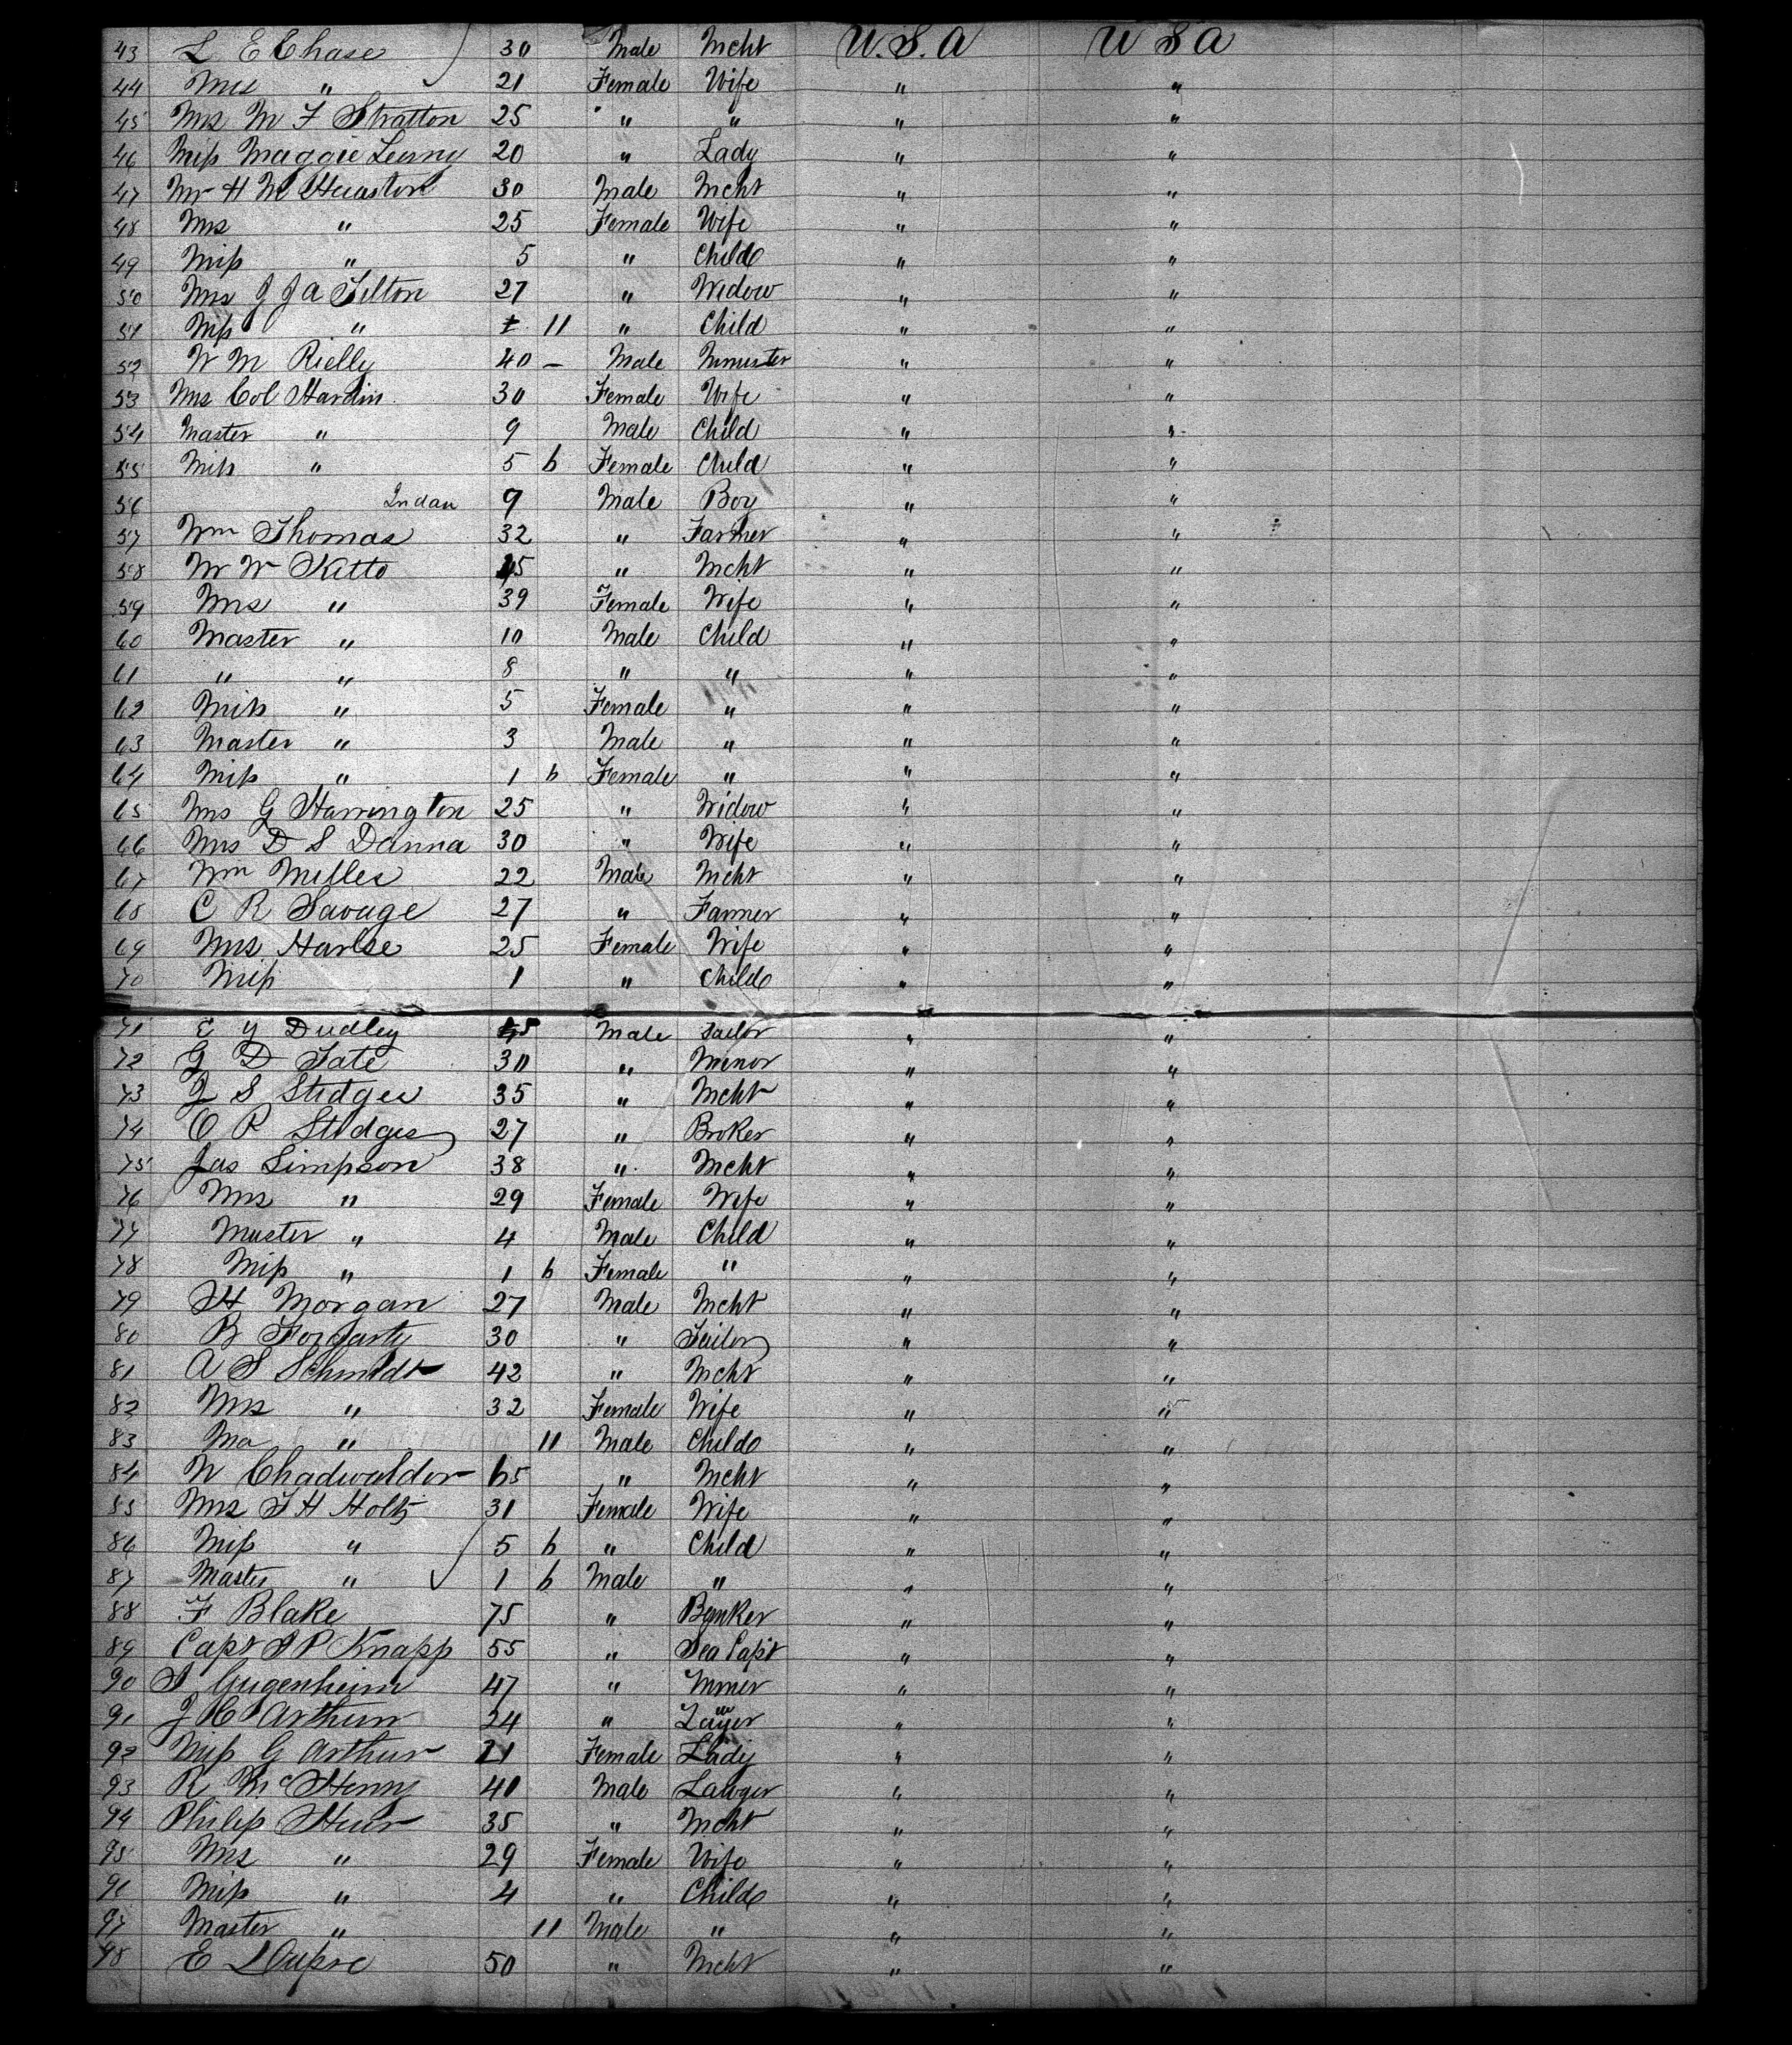 43 L E Chase 30 Male Mcht U.S.A U S A
44 Mrs " 21 Female Wife " "
45 Mrs M F Stratton 25 " " " "
46 Miss Maggie 20 " Lady " "
47 Mr H M Hueston 30 Male Mcht " "
48 Mrs " 25 Female Wife " "
49 Miss " 5 " Child " "
50 Mrs J J A Tilton 27 " Widow " "
51 Miss " 11 " Child " "
52 W M Rielly 40 – Male Minister " "
53 Mrs Col Hardin 30 Female Wife " "
54 Master " 9 Male Child " "
55 Miss " 5 6 Female Child " "
56 Indan 9 Male Boy " "
57 Wm Thomas 32 " Farmer " "
58 W W Katto 45 " Mcht " "
59 Mrs " 39 Female Wife " "
60 Master " 10 Male Child " "
61 " " 8 " " " "
62 Miss " 5 Female " " "
63 Master " 3 Male " " "
64 Miss " 1 6 Female " " "
65 Mrs G Harrington 25 " Widow " "
66 Mrs D S Danna 30 " Wife " "
67 Wm Milles 22 Male Mcht " "
68 C R Savage 27 " Farmer " "
69 Mrs Harlse 25 Female Wife " "
70 Miss 1 " Child " "
71 E Y Dudley 45 Male Sailor " "
72 G D Tate 30 " Minor " "
73 J S Stidger 35 " Mcht " "
74 O P Stidger 27 " Broker " "
75 Jas Simpson 38 " Mcht " "
76 Mrs " 29 Female Wife " "
77 Master " 4 Male Child " "
78 Miss " 1 6 Female " " "
79 H Morgan 27 Male Mcht " "
80 B Forgarty 30 " Tailor " "
81 A S Schmidt 42 " Mcht " "
82 Mrs " 32 Female Wife " "
83 Ma " 11 Male Child " "
84 N Chadwalder 65 " Mcht " "
85 Mrs T H Holtz 31 Female Wife " "
86 Miss " 5 6 " Child " "
87 Master " 1 6 Male " " "
88 F Blake 75 " Banker " "
89 Capt S P Knapp 55 " Sea Capt " "
90 S Gugenheim 47 " Minir " "
91 J C Arthur 24 " Lawyer " "
92 Miss G Arthur 21 Female Lady " "
93 R McHenry 40 Male Lawyer " "
94 Philip Heur 35 " Mcht " "
95 Mrs " 29 Female Wife " "
96 Miss " 4 " Child " "
97 Master " 11 Male " " "
98 E Dupre 50 " Mcht " "